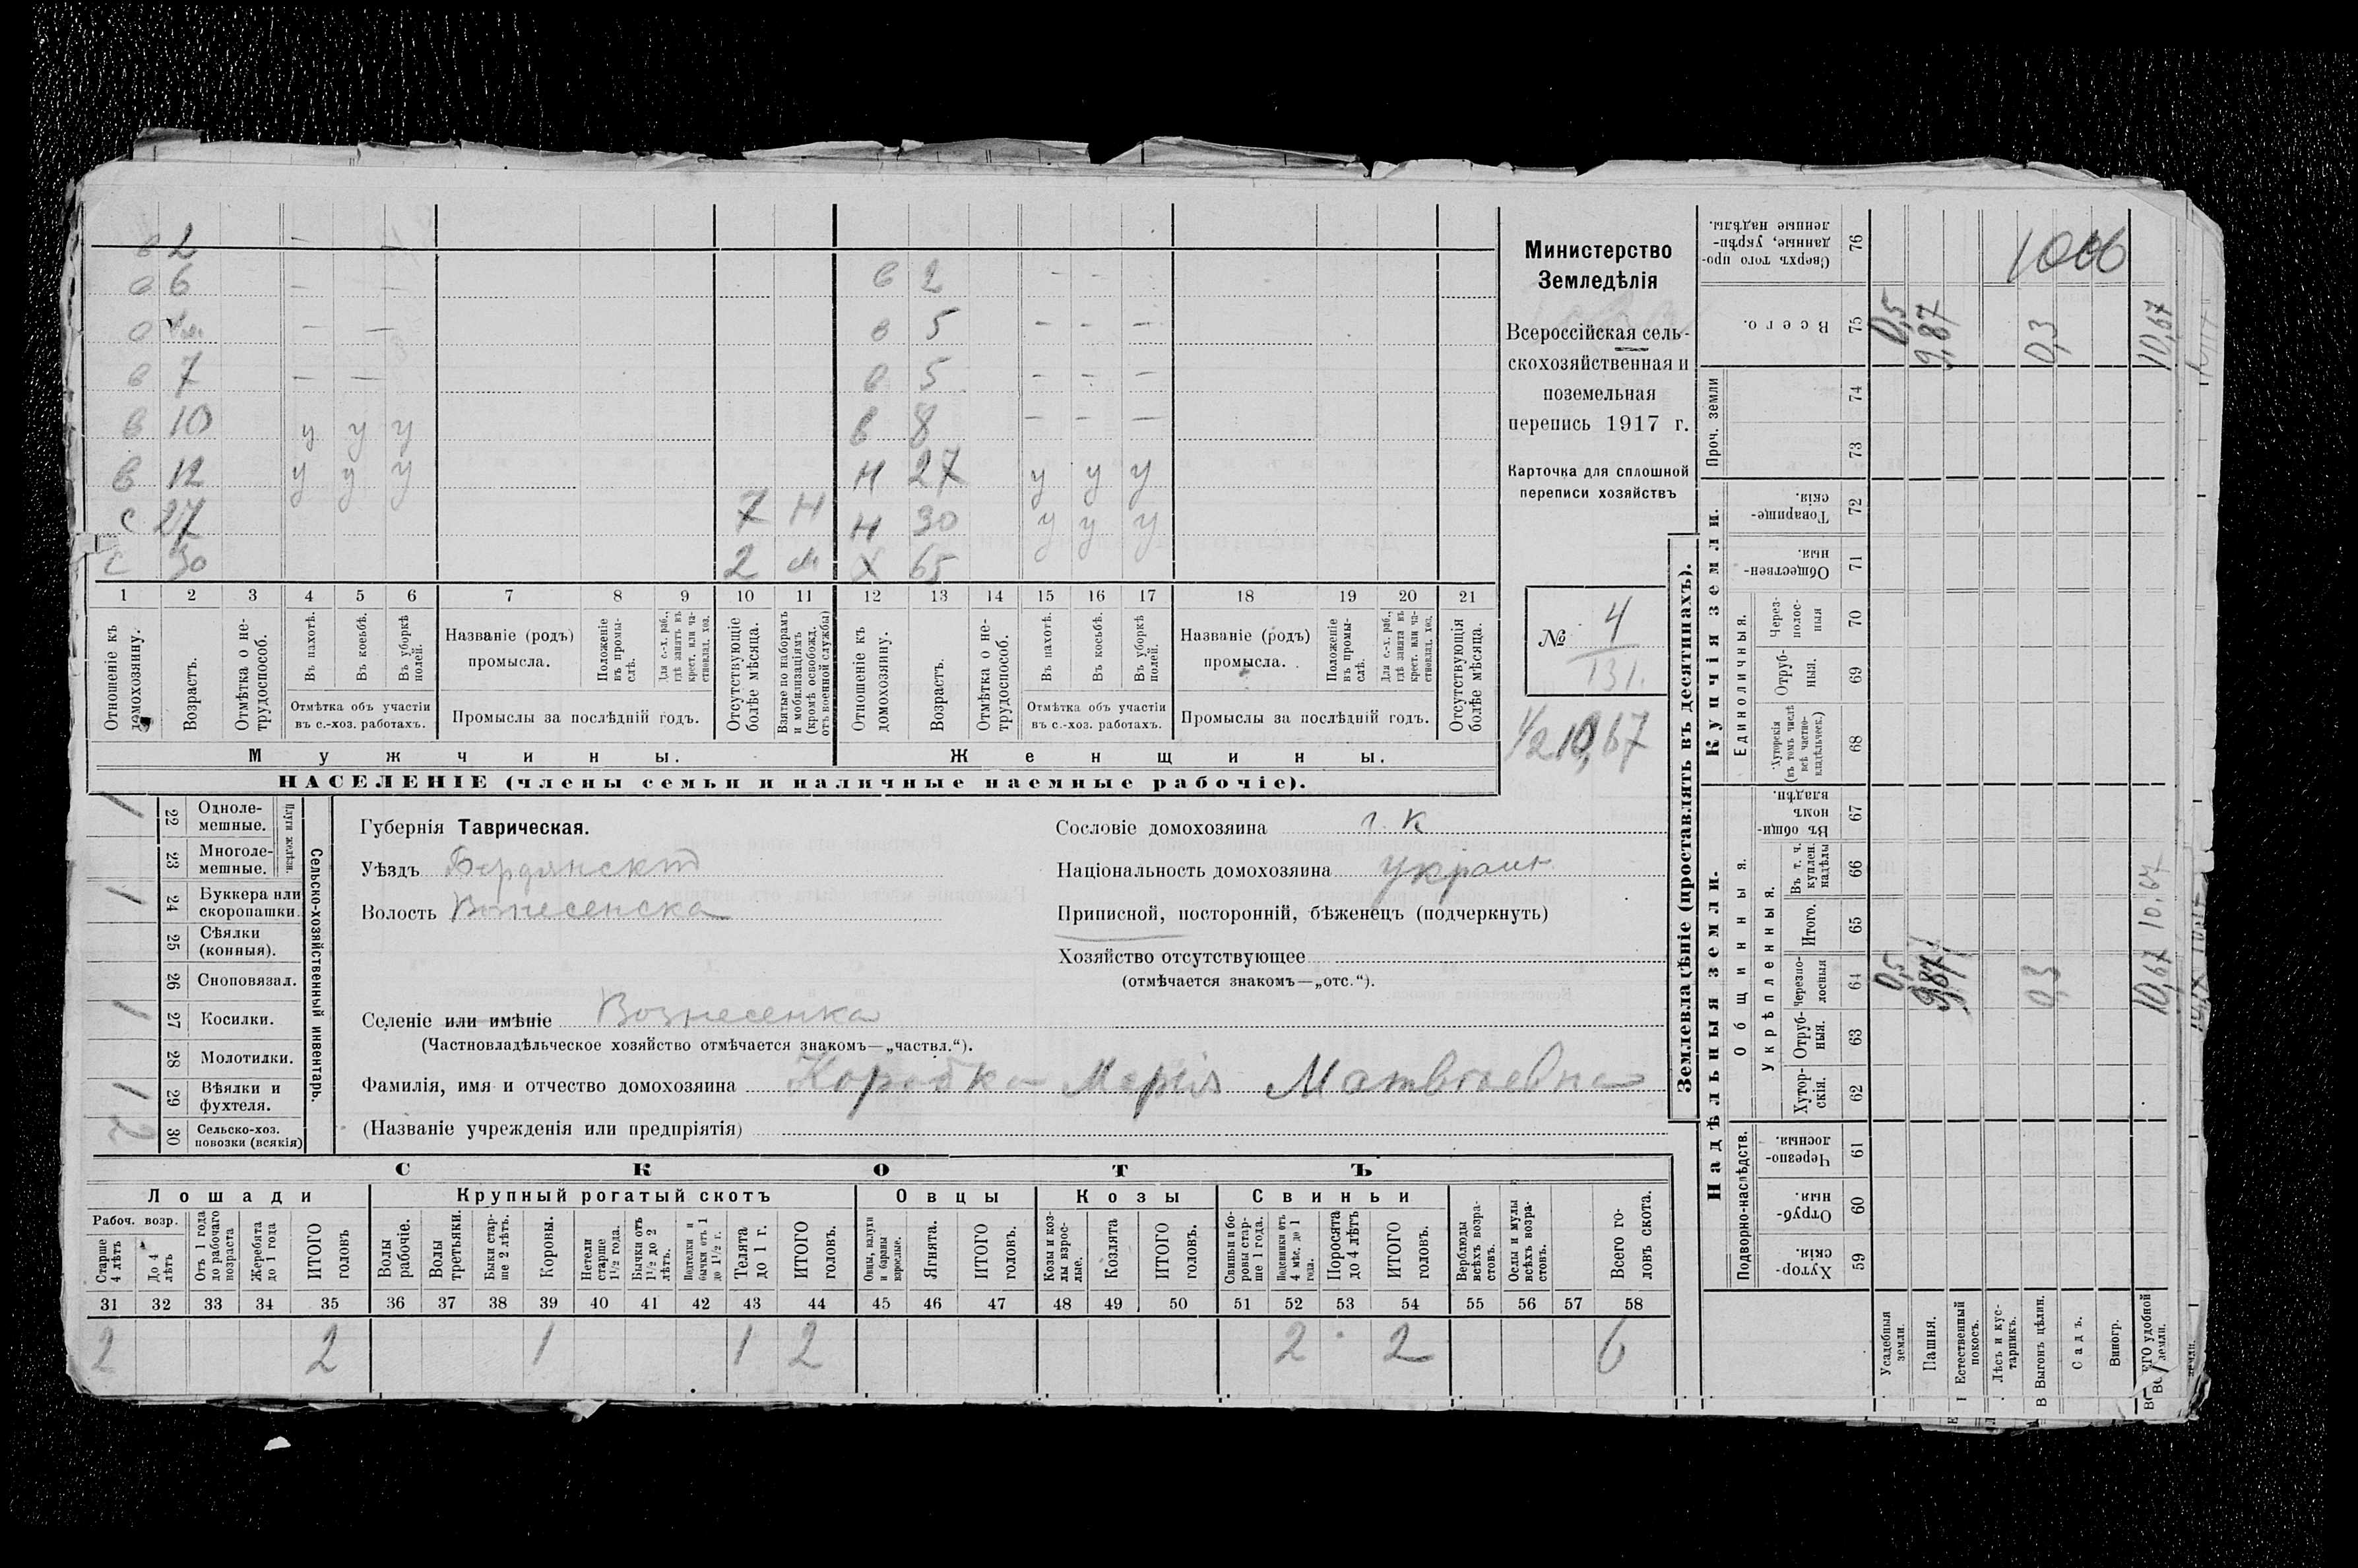 в 2 — —
о 6 — — в 2 — —
о — — в 5 — — —
в 7 — — в 5 — — —
в 10 у у у в 8 — — —
в 12 у у у н 27 у у у
с 27 7 н н 30 у у у
с 30 2 м х 65
1 2 3 4 5 6 7 8 9 10 11 12 13 14 15 16 17 18 19 20 21
Отношеніе къ домохозяину.
Возрастъ.
Отмѣтка о нетрудоспособ.
Въ пахотѣ.
Въ косьбѣ.
Въ уборкѣ полей.
Отмѣтка объ участіи
въ с.-хоз. работахъ.
Названіе (родъ)
промысла.
Положеніе въ промыслѣ.
Для с.-х. раб., гдѣ занятъ въ крест. или частновлад. хоз.
Промыслы за послѣдній годъ.
Отсутствующіе болѣе мѣсяца.
Взятые по наборамъ и мобилизаціямъ (кромѣ освобожд. отъ военной службы)
Отношеніе къ домохозяину.
Возрастъ.
Отмѣтка о нетрудоспособ.
Въ пахотѣ.
Въ косьбѣ.
Въ уборкѣ полей.
Отмѣтка объ участіи
въ с.-хоз. работахъ.
Названіе (родъ)
промысла.
Положеніе въ промыслѣ.
Для с.-х. раб., гдѣ занята въ крест. или частновлад. хоз.
Промыслы за послѣдній годъ.
Отсутствующія болѣе мѣсяца.
Мужчины. Женщины.
НАСЕЛЕНІЕ (члены семьи и наличные наемные рабочіе).
Министерство
Земледѣлія
Всероссійская сель-
скохозяйственная и
поземельная
перепись 1917 г.
Карточка для сплошной
переписи хозяйствъ
№ 4
131.
1/2 10,67
Сельско-хозяйственный инвентарь.
Плуги желѣзн.
1 22 Одноле-
мешные.
23 Многоле-
мешные.
1 24 Буккера или
скоропашки.
25 Сѣялки
(конныя).
26 Сноповязал.
1 27 Косилки.
28 Молотилки.
1 29 Вѣялки и
фухтеля.
2 30 Сельско-хоз.
повозки (всякія)
Губернія Таврическая.
Уѣздъ Бердянскій
Волость Вознесенска
Селеніе или имѣніе Вознесенка
(Частновладѣльческое хозяйство отмѣчается знакомъ—„частвл.“).
Фамилія, имя и отчество домохозяина Коробка Марія Матвѣевна
(Названіе учрежденія или предпріятія)
Сословіе домохозяина г. к
Національность домохозяина украин
Приписной, посторонній, бѣженецъ (подчеркнуть)
Хозяйство отсутствующее
(отмѣчается знакомъ—„отс.“).
СКОТЪ
Лошади Крупный рогатый скотъ Овцы Козы Свиньи
Рабоч. возр.
Старше 4 лѣтъ
До 4 лѣтъ
Отъ 1 года до рабочаго возраста
Жеребята до 1 года
ИТОГО головъ
Волы рабочіе.
Волы третьяки.
Быки старше 2 лѣтъ.
Коровы.
Нетели старше 1½ года.
Бычки отъ 1½ до 2 лѣтъ.
Подтелки и бычки отъ 1 до 1½ г.
Телята до 1 г.
ИТОГО головъ.
Овцы, валухи и бараны взрослые.
Ягнята.
ИТОГО головъ.
Козы и козлы взрослые.
Козлята
ИТОГО головъ.
Свиньи и боровы старше 1 года.
Подсвинки отъ 4 мѣс. до 1 года.
Поросята до 4 лѣтъ
ИТОГО головъ.
Верблюды всѣхъ возрастовъ.
Ослы и мулы всѣхъ возрастовъ.
Всего головъ скота.
31 32 33 34 35 36 37 38 39 40 41 42 43 44 45 46 47 48 49 50 51 52 53 54 55 56 57 58
2 2 1 1 2 2 2 6
Землевладѣніе (проставлять въ десятинахъ).
Надѣльныя земли.
Купчія земли.
Проч. земли
Подворно-наслѣдств.
Общинныя.
Укрѣпленныя.
Единоличныя.
Сверхъ того проданные, укрѣпленные надѣлы. 76 1066
Всего. 75 0,5 9,87 0,3 10,67
74
73
Товарищескія. 72
Общественныя. 71
Черезполосныя 70
Отрубныя. 69
Хуторскія (въ томъ числѣ всѣ частновладѣльческ.) 68
Въ общинномъ владѣн. 67
Въ т. ч. куплен. надѣлы 66
Итого. 65
Черезполосныя 64 0,5 9,87 0,3 10,67 10.67
Отрубныя. 63
Хуторскія. 62
Черезполосныя. 61
Отрубныя. 60
Хуторскія. 59
Усадебныя земли.
Пашня.
Естественный покосъ.
Лѣсъ и кустарникъ.
Выгонъ цѣлин.
Садъ.
Виногр.
ВСЕГО удобной земли.